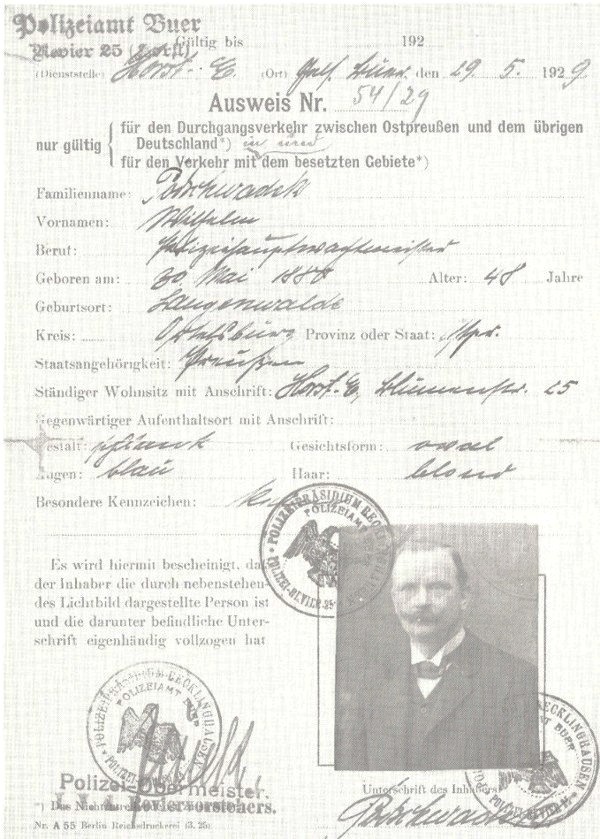 Polizeiamt Buer
Revier 25 (Horst)
Gültig bis 192
(Dienststelle) Horst-E. (Ort) Gels. Buer. den 29. 5. 1929
Ausweis Nr. 54/29
nur gültig
für den Durchgangsverkehr zwischen Ostpreußen und dem übrigen
Deutschland*) in und
für den Verkehr mit dem besetzten Gebiete*)
Familienname:
Vornamen: Wilhelm
Beruf: Polizeihauptwachtmeister
Geboren am: 30. Mai Alter: 48 Jahre
Geburtsort: Langenwalde
Kreis: Ortelsburg Provinz oder Staat: Opr.
Staatsangehörigkeit: Preußen
Ständiger Wohnsitz mit Anschrift: Horst-E, Blumenstr. 25
Gegenwärtiger Aufenthaltsort mit Anschrift:
Gestalt: schlank Gesichtsform: oval
Augen: blau Haar: blond
Besondere Kennzeichen:
POLIZEIPRÄSIDIUM RECKLINGHAUSEN
POLIZEIAMT BUER
POLIZEI-REVIER 25
Es wird hiermit bescheinigt, daß
der Inhaber die durch nebenstehen-
des Lichtbild dargestellte Person ist
und die darunter befindliche Unter-
schrift eigenhändig vollzogen hat
POLIZEIPRÄSIDIUM RECKLINGHAUSEN
POLIZEIAMT BUER
POLIZEI-REVIER
RECKLINGHAUSEN
AMT BUER
Polizei-Obermeister.
Unterschrift des Inhabers
*) Das
Reviervorstehers.
Nr. A 55 Berlin Reichsdruckerei (3. 25)